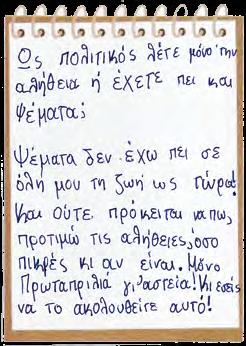 Ως πολιτικός λέτε μόνο την
αλήθεια ή έχετε πει και
ψέματα;
Ψέματα δεν έχω πει σε
όλη μου τη ζωή ως τώρα!
Και ούτε πρόκειται να πω,
προτιμώ τις αλήθειες, όσο
πικρές κι αν είναι. Μόνο
Πρωταπριλιά γι' αστεία! Κι εσείς
να το ακολουθείτε αυτό!